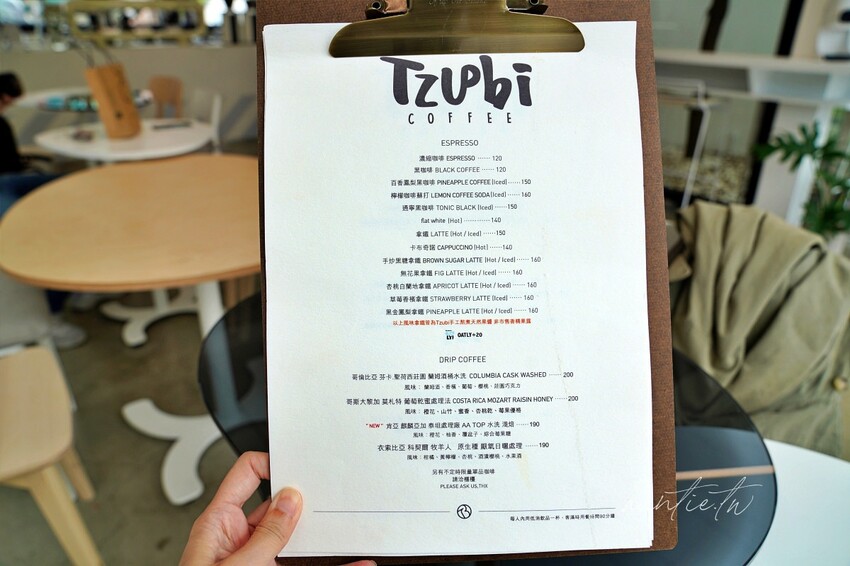 Tzubi
COFFEE
ESPRESSO
濃縮咖啡 ESPRESSO ······ 120
黑咖啡 BLACK COFFEE ······ 120
百香鳳梨黑咖啡 PINEAPPLE COFFEE (Iced) ······ 150
檸檬咖啡蘇打 LEMON COFFEE SODA (Iced) ······ 160
通寧黑咖啡 TONIC BLACK (Iced) ······ 150
flat white (Hot) ············ 140
拿鐵 LATTE (Hot / Iced) ······ 150
卡布奇諾 CAPPUCCINO (Hot) ······ 140
手炒黑糖拿鐵 BROWN SUGAR LATTE (Hot / Iced) ······ 160
無花果拿鐵 FIG LATTE (Hot / Iced) ······ 160
杏桃白蘭地拿鐵 APRICOT LATTE (Hot / Iced) ······ 160
草莓香橘拿鐵 STRAWBERRY LATTE (Iced) ······ 160
黑金鳳梨拿鐵 PINEAPPLE LATTE (Hot / Iced) ······ 160
以上風味拿鐵皆為Tzubi手工熬煮天然果醬 非市售香精果露
OATLY+20
DRIP COFFEE
哥倫比亞 芬卡.聖荷西莊園 蘭姆酒桶水洗 COLUMBIA CASK WASHED ······ 200
風味：蘭姆酒、香蕉、葡萄、櫻桃、莊園巧克力
哥斯大黎加 莫札特 葡萄乾蜜處理法 COSTA RICA MOZART RAISIN HONEY ······ 200
風味：橙花、山竹、蜜香、杏桃乾、莓果優格
"NEW" 肯亞 麒麟亞加 泰坦處理廠 AA TOP 水洗 淺焙 ······ 190
風味：橙花、柚香、羅晶子、綜合莓果糖
衣索比亞 科契爾 牧羊人 原生種 厭氧日曬處理 ······ 190
風味：柑橘、黃檸檬、杏桃、酒漬櫻桃、水果酒
另有不定時限量單品咖啡
請洽櫃檯
PLEASE ASK US,THX
每人內用低消飲品一杯，客滿時用餐時間90分鐘